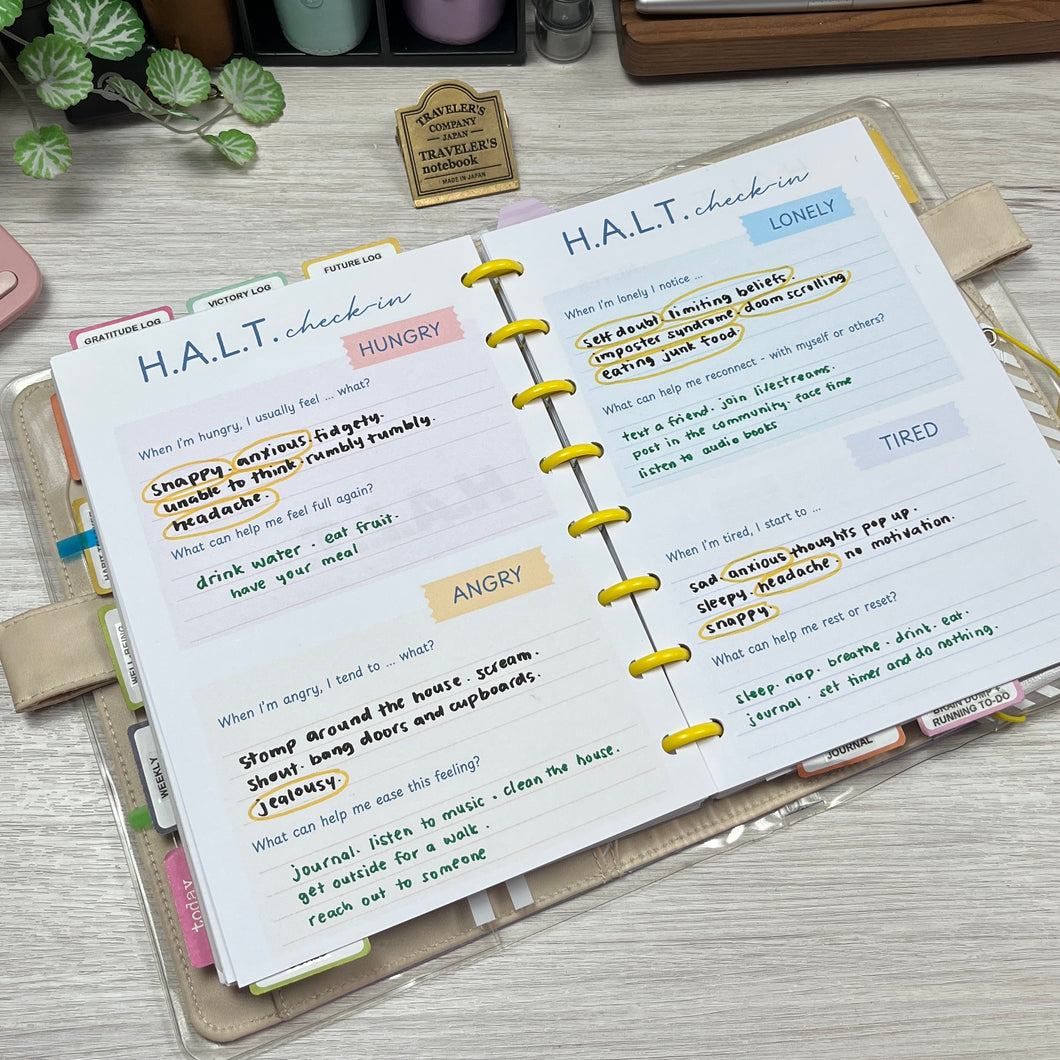 TRAVELER'S
COMPANY
JAPAN
TRAVELER'S
notebook
MADE IN JAPAN
GRATITUDE LOG
VICTORY LOG
FUTURE LOG
H.A.L.T. check-in
HUNGRY
When I'm hungry, I usually feel ... what?
snappy. anxious. fidgety.
unable to think. rumbly tumbly.
headache.
What can help me feel full again?
drink water. eat fruit.
have your meal
ANGRY
When I'm angry, I tend to ... what?
stomp around the house. scream.
shout. bang doors and cupboards.
jealousy.
What can help me ease this feeling?
journal. listen to music. clean the house.
get outside for a walk.
reach out to someone
H.A.L.T. check-in
LONELY
When I'm lonely I notice ...
self doubt. limiting beliefs.
imposter syndrome. doom scrolling
eating junk food.
What can help me reconnect - with myself or others?
text a friend. join livestreams.
post in the community. face time
listen to audio books
TIRED
When I'm tired, I start to ...
sad. anxious thoughts pop up.
sleepy. headache. no motivation.
snappy.
What can help me rest or reset?
sleep. nap. breathe. drink. eat.
journal. set timer and do nothing.
WELL-BEING
WEEKLY
today
JOURNAL
BRAIN DUMP +
RUNNING TO-DO